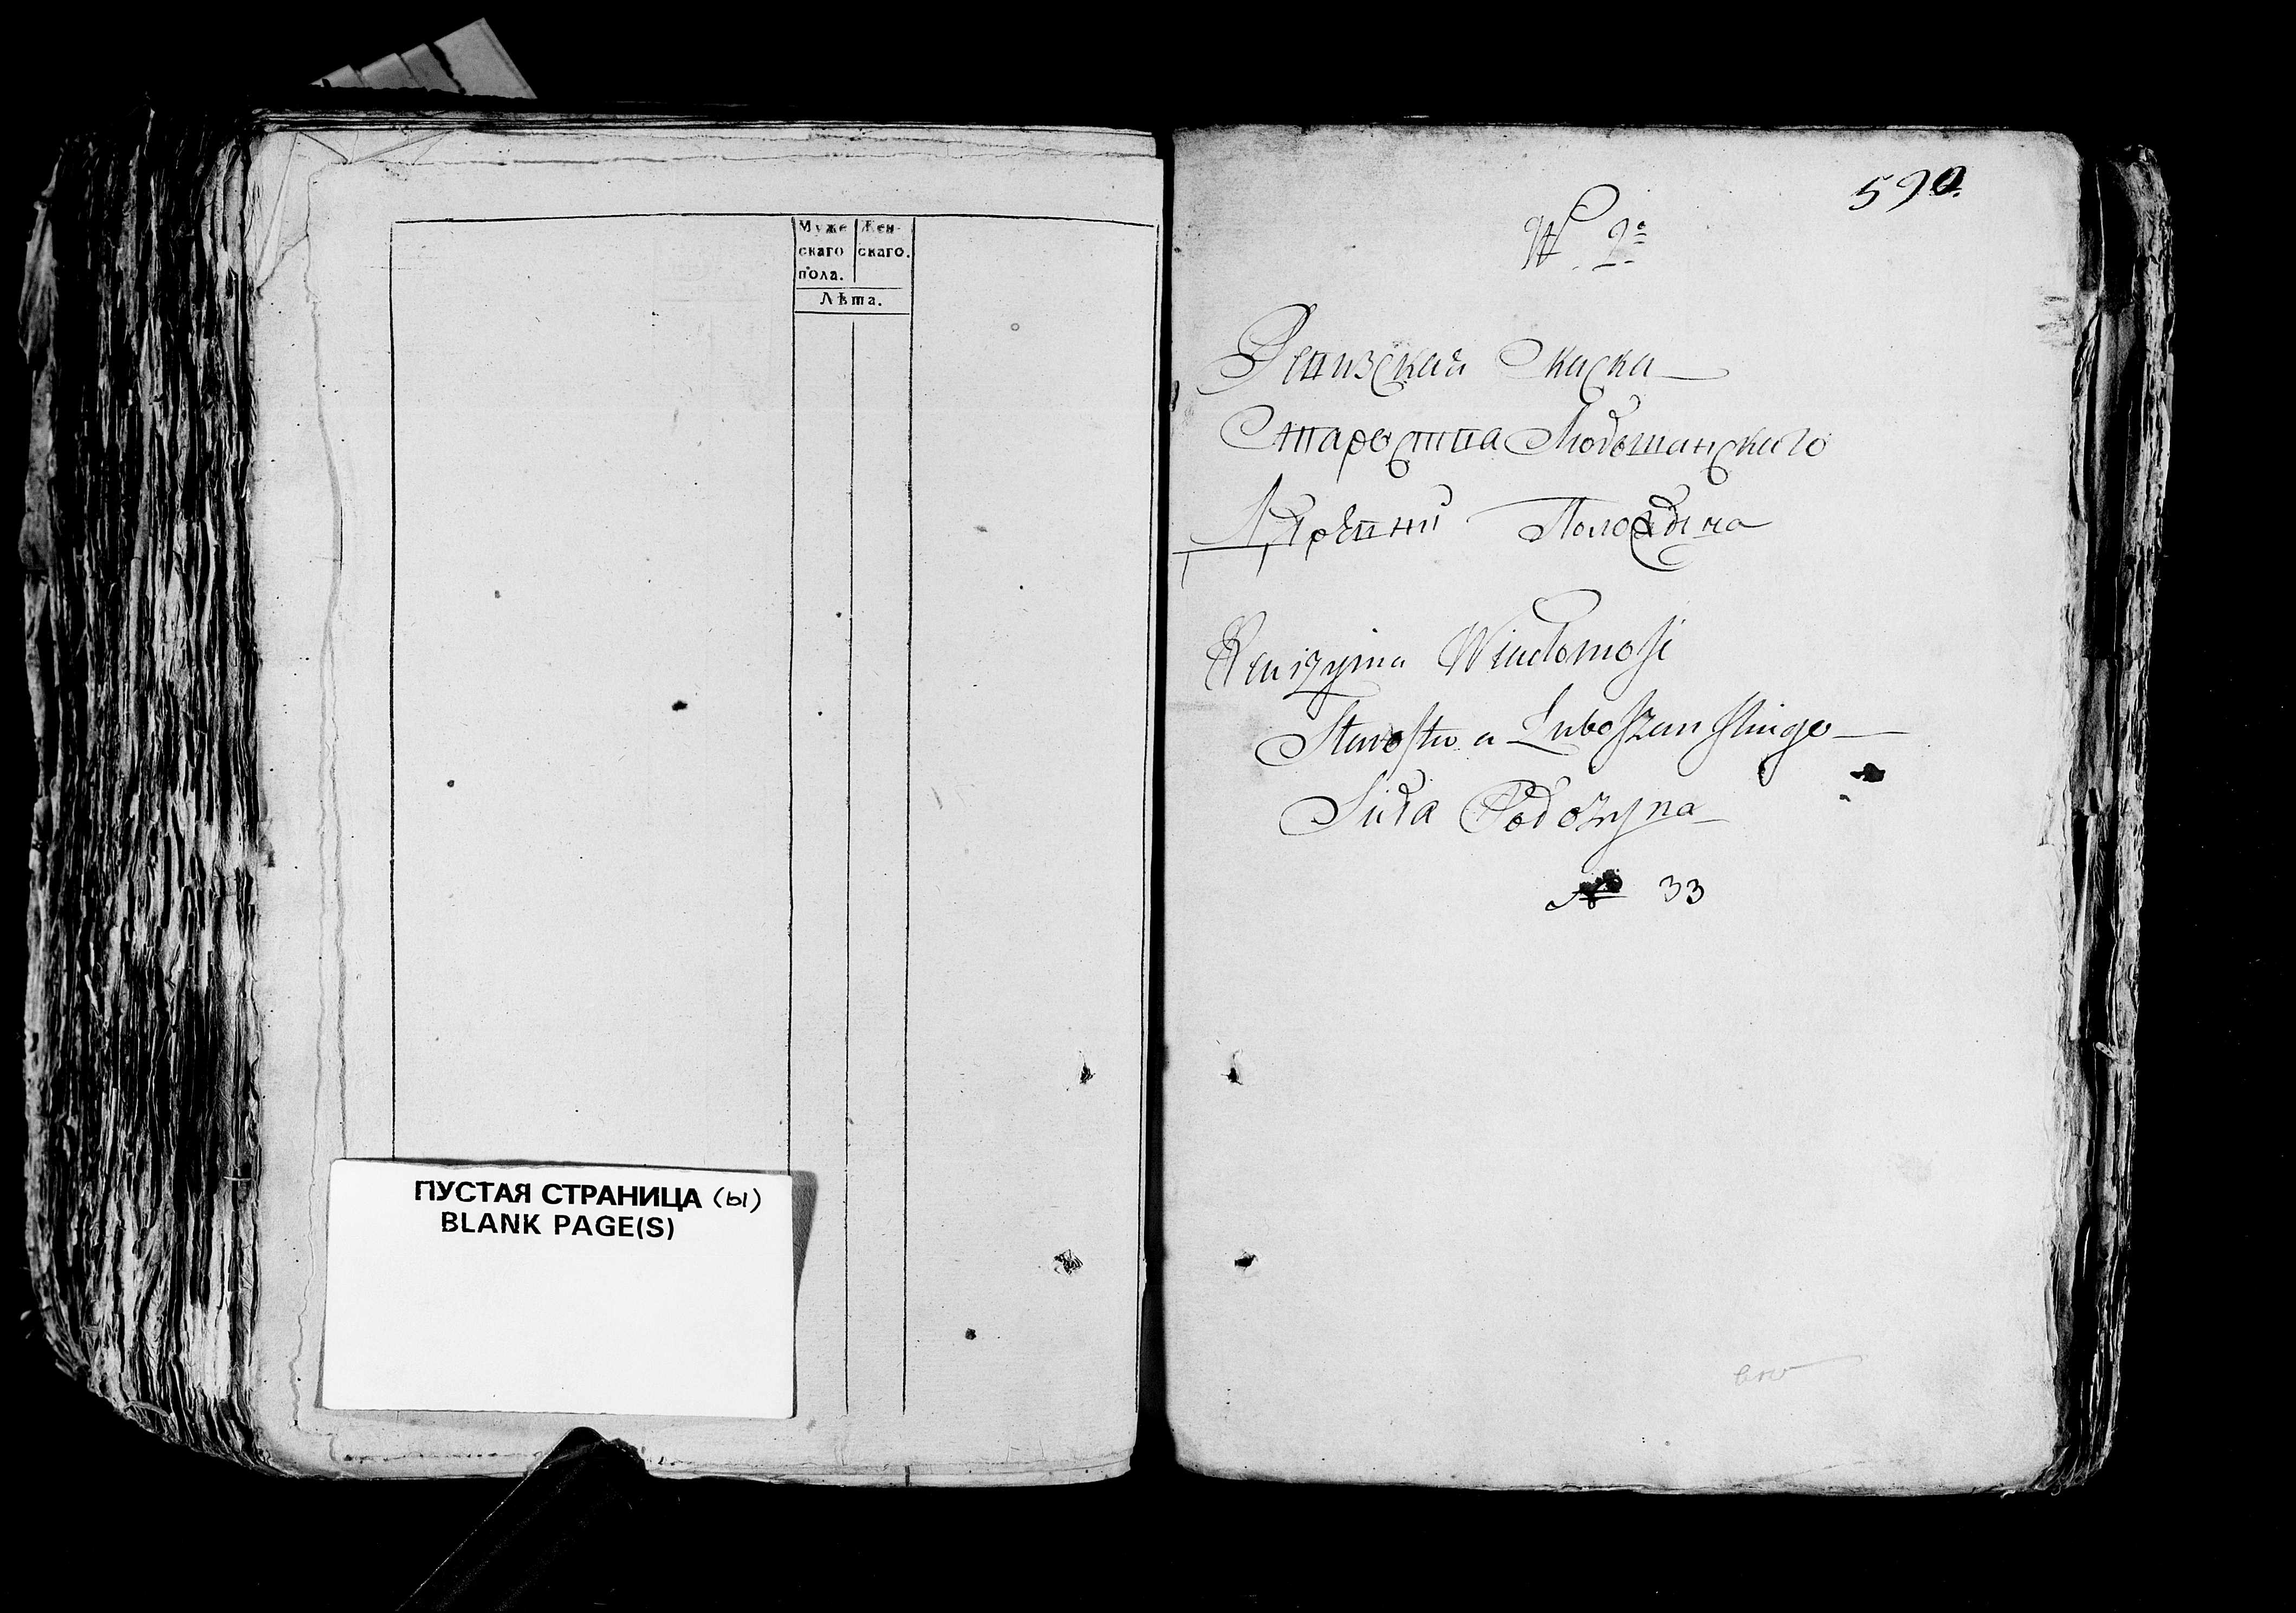 Муже Жен-
скаго скаго.
пола.
Лѣта.
ПУСТАЯ СТРАНИЦА (ы)
BLANK PAGE(S)
590.
№ 2º
Ревизская Скаска
Староства Любошанского
Деревни
Rewizyina Wiadomość
Starostwa Luboszanskiego
Sioła Podozyna
№ 33